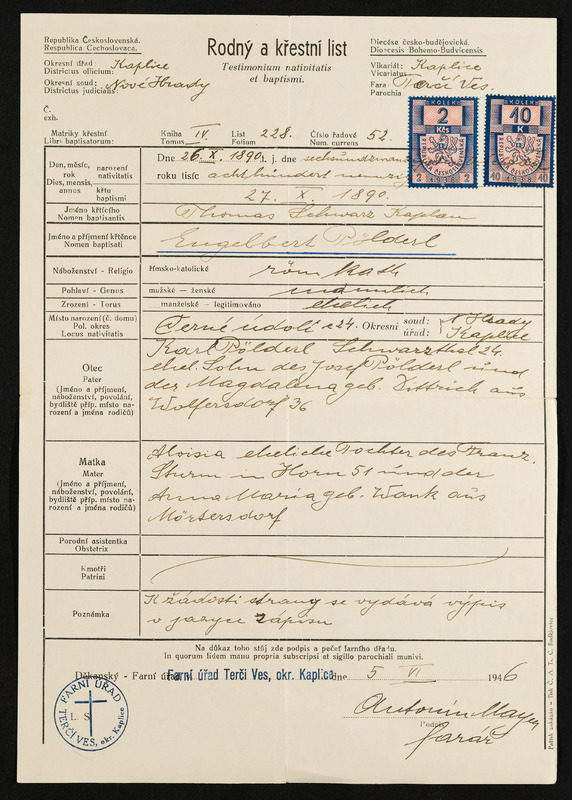 Republika Československá.
Respublica Čechoslovaca.
Rodný a křestní list
Testimonium nativitatis
et baptismi.
Diecése česko-budějovická.
Dioecesis Bohemo-Budvicensis.
Okresní úřad: Kaplice
Districtus officium:
Okresní soud: Nové Hrady
Districtus judicialis:
Vikariát: Kaplice
Vicariatus
Fara: Terčí Ves.
Parochia
Č.
exh.
KOLEK
2
Kčs
KOLEK
10
K
Matriky křestní
Libri baptisatorum:
Kniha IV. List 228. Číslo řadové 52.
Tomus Folium Num. currens
Den, měsíc, rok narození
Dies, mensis, annus nativitatis
křtu
baptismi
Dne 26. X. 1890 t. j. dne
roku tisíc
27. X. 1890.
Jméno křtícího
Nomen baptisantis
Thomas Schwarz Kaplan
Jméno a příjmení křtěnce
Nomen baptisati
Engelbert Pölderl
Náboženství - Religio
římsko-katolické röm kath
Pohlaví - Genus
mužské — ženské männlich
Zrození - Torus
manželské - legitimováno ehelich
Místo narození (č. domu)
Pol. okres
Locus nativitatis
Černé údolí č 24. Okresní soud: N Hrady
úřad: Kaplice
Otec
Pater
(Jméno a příjmení,
náboženství, povolání,
bydliště příp. místo na-
rození a jména rodičů)
Karl Pölderl Schwarzthal 24.
ehel. Sohn des Josef Pölderl und
der Magdalena geb. Dittrich aus
Wolfersdorf 36
Matka
Mater
(Jméno a příjmení,
náboženství, povolání,
bydliště příp. místo na-
rození a jména rodičů)
Aloisia eheliche Tochter des Franz
Sturm in Horn 51 und der
Anna Maria geb. Wank aus
Mörtersdorf
Porodní asistentka
Obstetrix
Kmotři
Patrini
Poznámka
K žádosti strany se vydává výpis
v jazyce zápisu
Na důkaz toho stůj zde podpis a pečeť farního úřadu.
In quorum fidem manu propria subscripsi et sigillo parochiali munivi.
Děkanský - Farní úřad Farní úřad Terčí Ves, okr. Kaplice dne 5 VI 1946
FARNÍ ÚŘAD
L. S.
TERČÍ VES, okr. Kaplice
Antonín Mayer
Podpis
farář